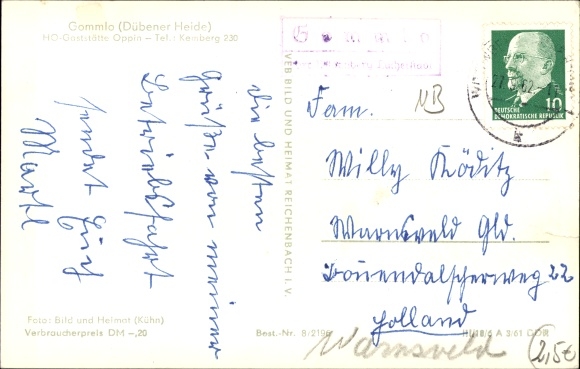 Gommlo (Dübener Heide)
HO-Gaststätte Oppin – Tel.: Kemberg 230
Gommlo
DEUTSCHE
DEMOKRATISCHE REPUBLIK
10
NB
Die besten
Grüße von meiner
Betriebsfahrt
sendet Euch
Martl
VEB BILD UND HEIMAT REICHENBACH I. V.
Fam.
Willy Köditz
Warnsveld Gld.
Bouendalscherweg 22
Holland
Foto: Bild und Heimat (Kühn)
Verbraucherpreis DM –,20
Best.-Nr. 8/2196
III/18/6 A 3/61 DDR
Warnsveld
2,50